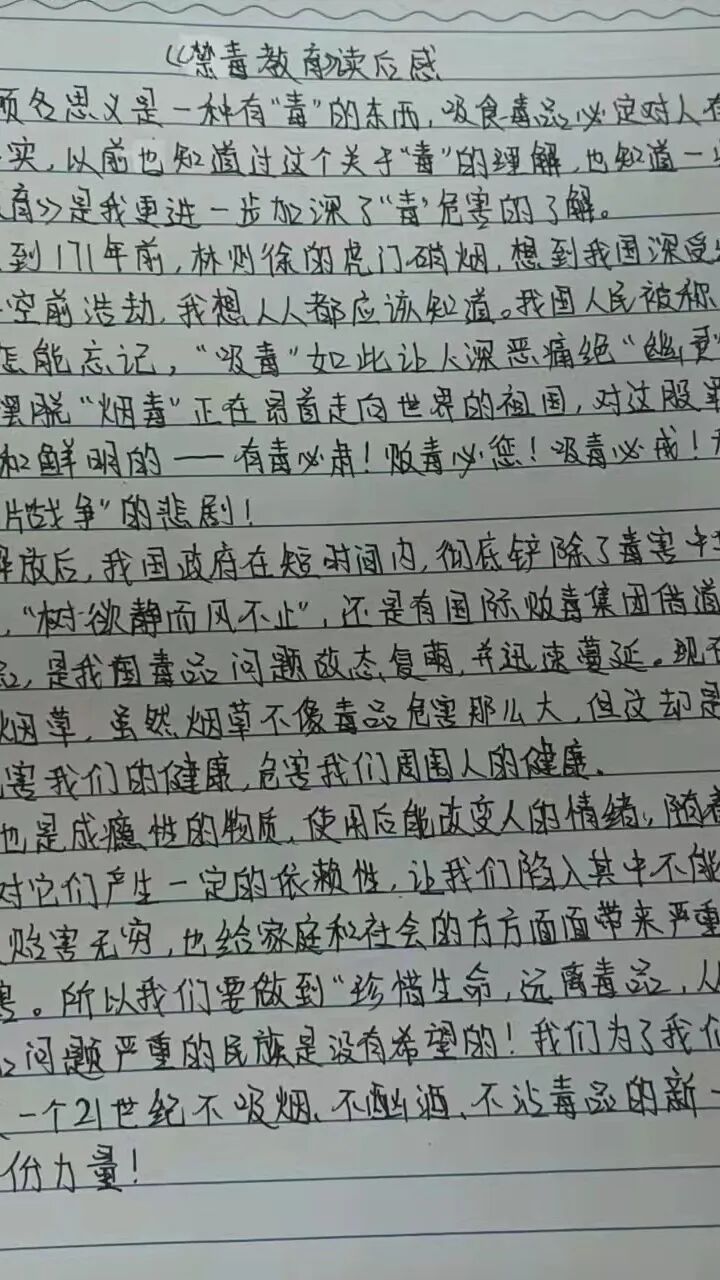 《禁毒教育》读后感
顾名思义是一种有“毒”的东西,吸食毒品必定对人有
实,以前也知道过这个关于“毒”的理解,也知道一
育》是我更进一步加深了“毒”危害的了解。
到171年前,林则徐的虎门硝烟,想到我国深受
空前浩劫,我想人人都应该知道。我国人民被称
怎能忘记,“吸毒”如此让人深恶痛绝“幽灵”
摆脱“烟毒”正在昂首走向世界的祖国,对这股
和鲜明的——有毒必肃!贩毒必惩!吸毒必戒!
片战争”的悲剧!
解放后,我国政府在短时间内,彻底铲除了毒害中
,“树欲静而风不止”,还是有国际贩毒集团借道
是我国毒品问题故态复萌,并迅速蔓延。现在
烟草,虽然烟草不像毒品危害那么大,但这却是
害我们的健康,危害我们周围人的健康、
也是成瘾性的物质,使用后能改变人的情绪,随着
对它们产生一定的依赖性,让我们陷入其中不能
贻害无穷,也给家庭和社会的方方面面带来严重
害。所以我们要做到“珍惜生命,远离毒品,从
问题严重的民族是没有希望的!我们为了我们
一个21世纪不吸烟、不酗酒、不沾毒品的新一
份力量!